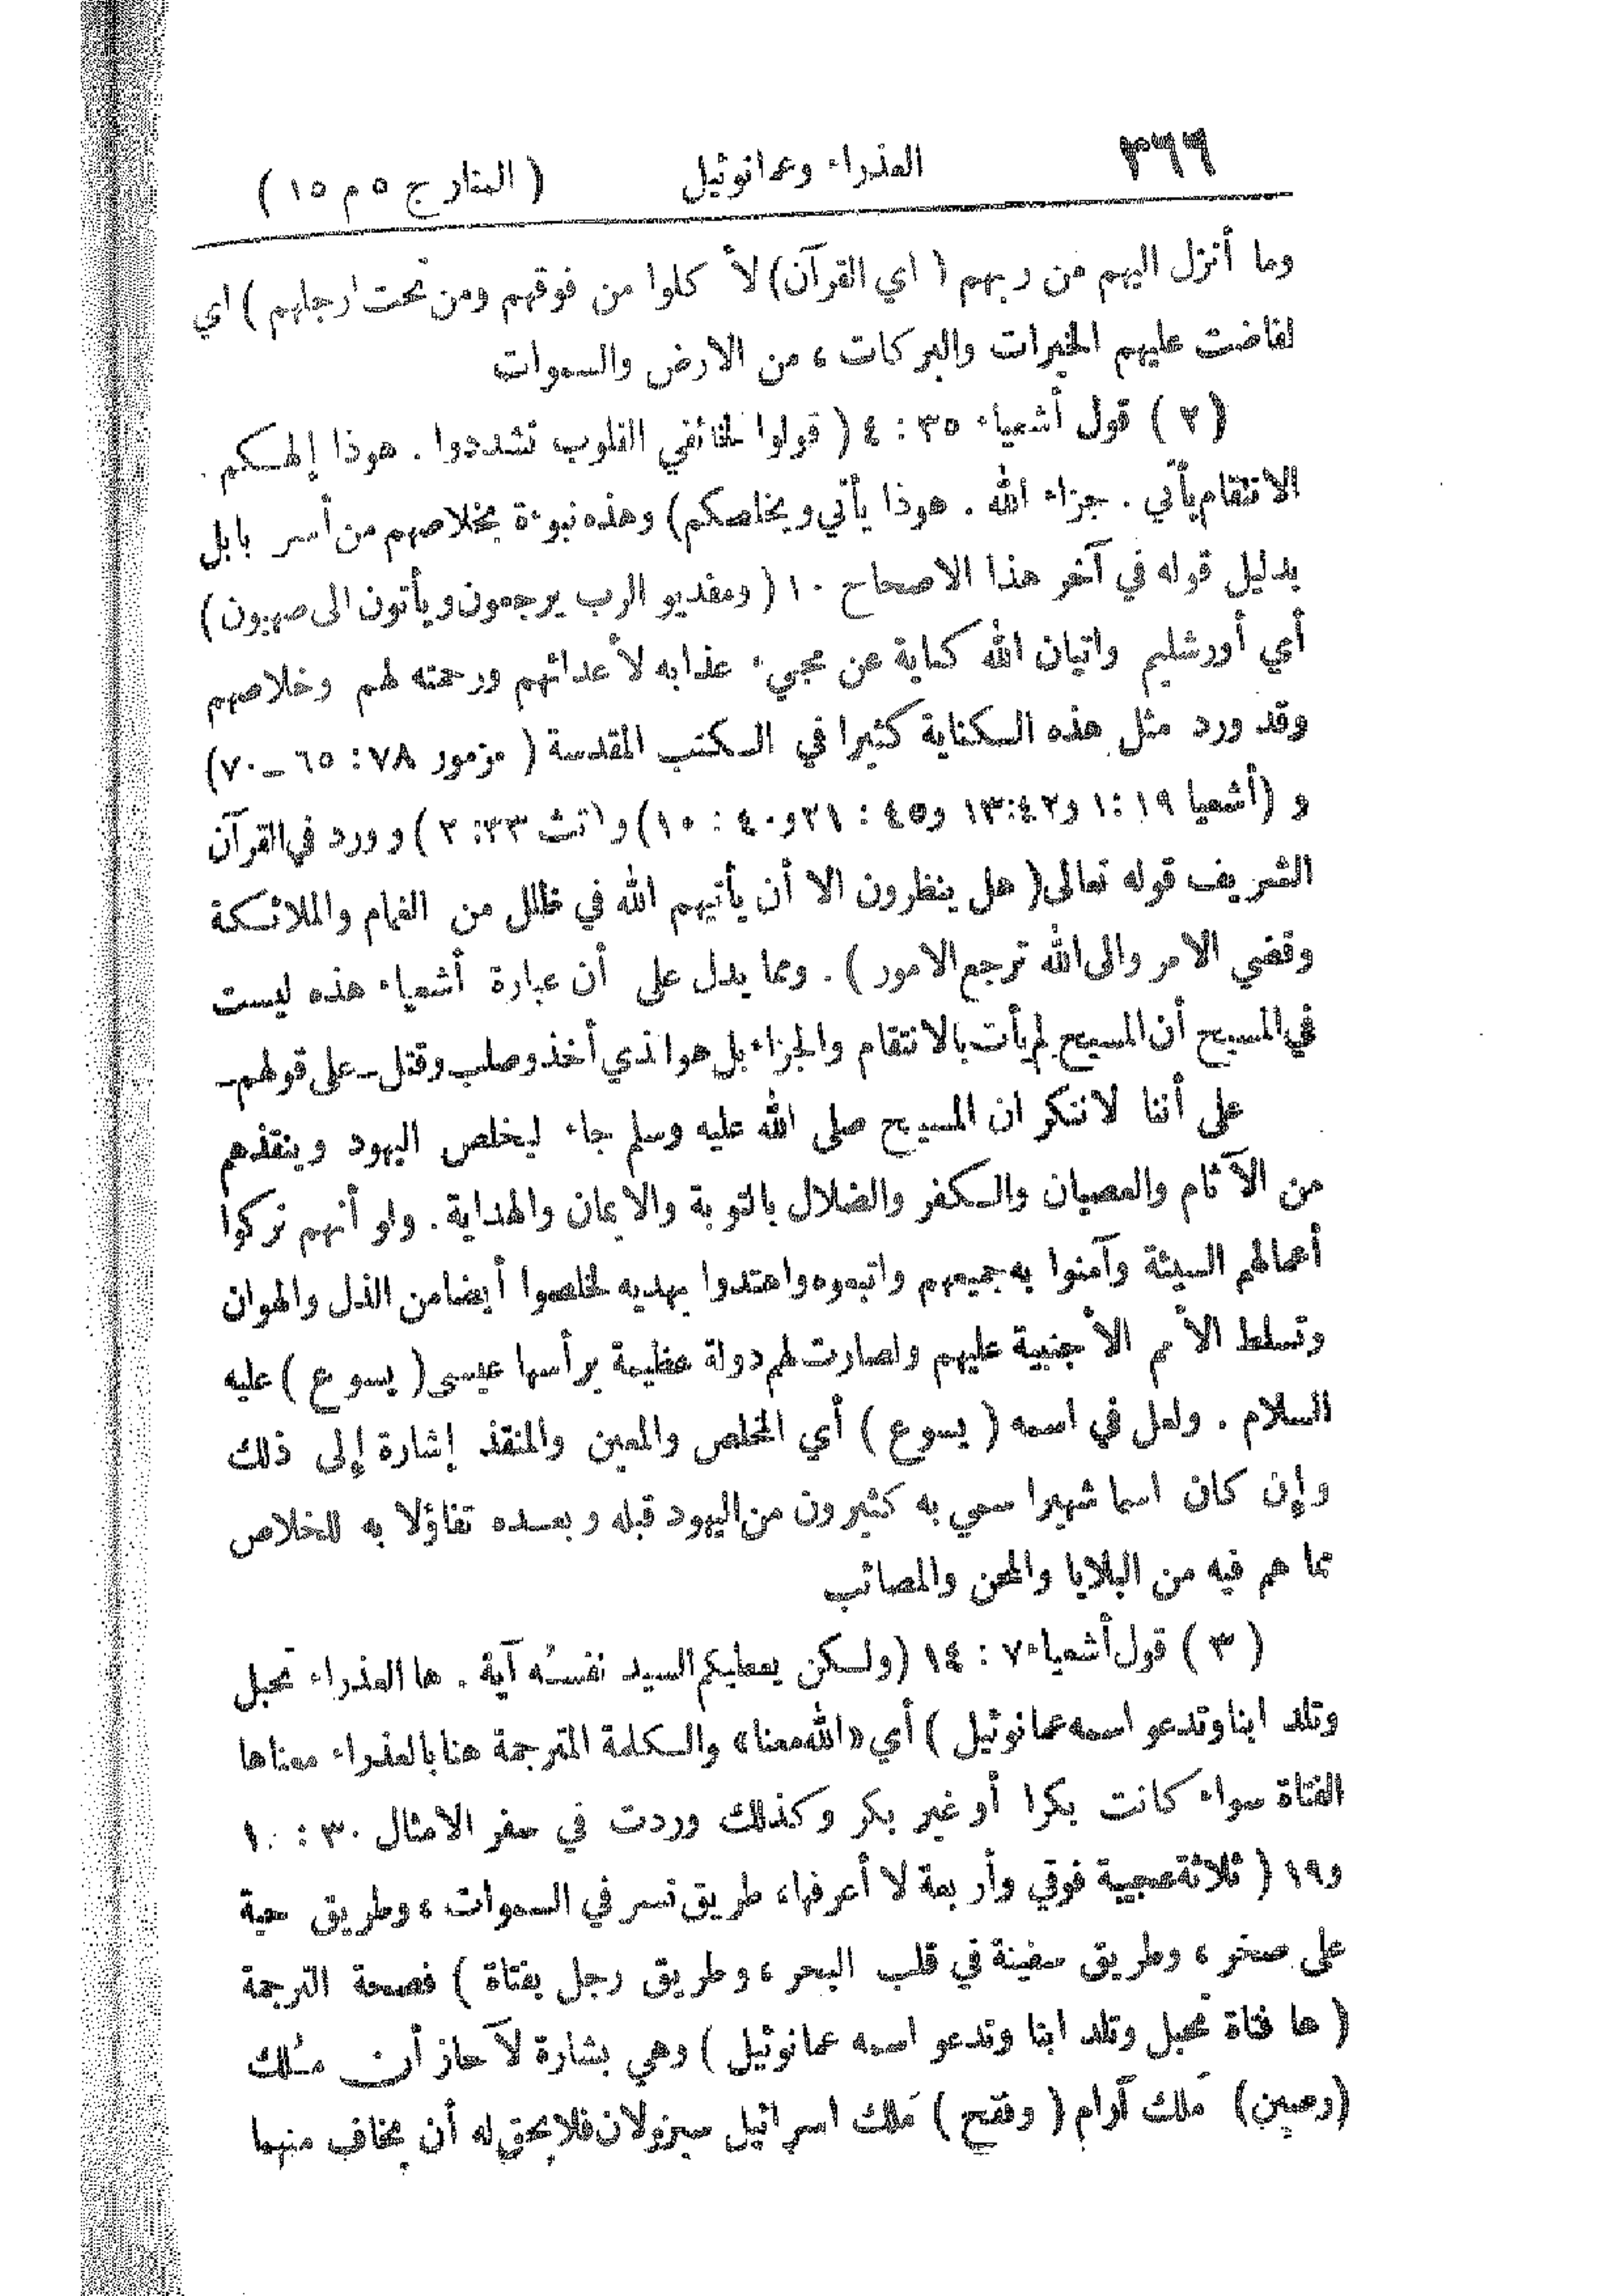 ٣٦٦ العذراء وعمانوئيل ( المنار ج ٥ م ١٥ )
وما أنزل اليهم من ربهم ( اي القرآن) لأ كلوا من فوقهم ومن تحت ارجلهم ) اي
لفاضت عليهم الخيرات والبركات ، من الارض والسموات
( ٢ ) قول أشعياء ٣٥ : ٤ ( قولوا لخائفي القلوب تشددوا . هوذا إلهكم .
الانتقام يأتي . جزاء الله . هوذا يأتي ويخلصكم) وهذه نبوءة بخلاصهم من أسر بابل
بدليل قوله في آخر هذا الاصحاح ١٠ ( ومفديو الرب يرجعون ويأتون الى صهيون )
أي أورشليم واتيان الله كناية عن مجيء عذابه لأعدائهم ورحمته لهم وخلاصهم
وقد ورد مثل هذه الكناية كثيرا في الكتب المقدسة ( مزمور ٧٨ : ٦٥ ــ ٧٠)
و (أشعيا ١٩ :١ و٤٢:١٣ و٤٥ : ٢١و٤٠ : ١٠) و (تث ٣٣: ٢ ) و ورد في القرآن
الشريف قوله تعالى ( هل ينظرون الا أن يأتيهم الله في ظلل من الغمام والملائكة
وقضي الامر والى الله ترجع الامور ) . ومما يدل على أن عبارة أشعياء هذه ليست
في المسيح أن المسيح لم يأت بالانتقام والجزاء بل هوا لذي أخذ وصلب وقتل ـ على قولهم ـ
على أننا لاننكر ان المسيح صلى الله عليه وسلم جاء ليخلص اليهود وينقذهم
من الآثام والعصيان والكفر والضلال بالتوبة والايمان والهداية . ولو أنهم تركوا
أعمالهم السيئة وآمنوا به جميعهم واتبعوه واهتدوا بهديه لخلصوا أيضا من الذل والهوان
وتسلط الأمم الأجنبية عليهم ولصارت لهم دولة عظيمة يرأسها عيسى ( يسوع ) عليه
السلام . ولعل في اسمه ( يسوع ) أي المخلص والمعين والمنقذ إشارة إلى ذلك
وإن كان اسما شهيرا سمي به كثيرون من اليهود قبله وبعده تفاؤلا به للخلاص
مما هم فيه من البلايا والمحن والمصائب
( ٣ ) قول أشعياء ٧ : ١٤ (ولكن يعطيكم السيد نفسُه آية . ها العذراء تحبل
وتلد ابنا وتدعو اسمه عمانوئيل ) أي «الله معنا» والكلمة المترجمة هنا بالعذراء معناها
الفتاة سواء كانت بكرا أو غير بكر وكذلك وردت في سفر الامثال ٣٠ : ١٠
و١٩ ( ثلاثة عجيبة فوقي وأربعة لا أعرفها ، طريق نسر في السموات ، وطريق حية
على صخر ، وطريق سفينة في قلب البحر ، وطريق رجل بفتاة ) فصحة الترجمة
( ها فتاة تحبل وتلد ابنا وتدعو اسمه عمانوئيل ) وهي بشارة لآحاز أن مُلك
(رصين) مَلك آرام ( وفقح ) مَلك اسرائيل سيزولان فلا يحق له أن يخاف منهما